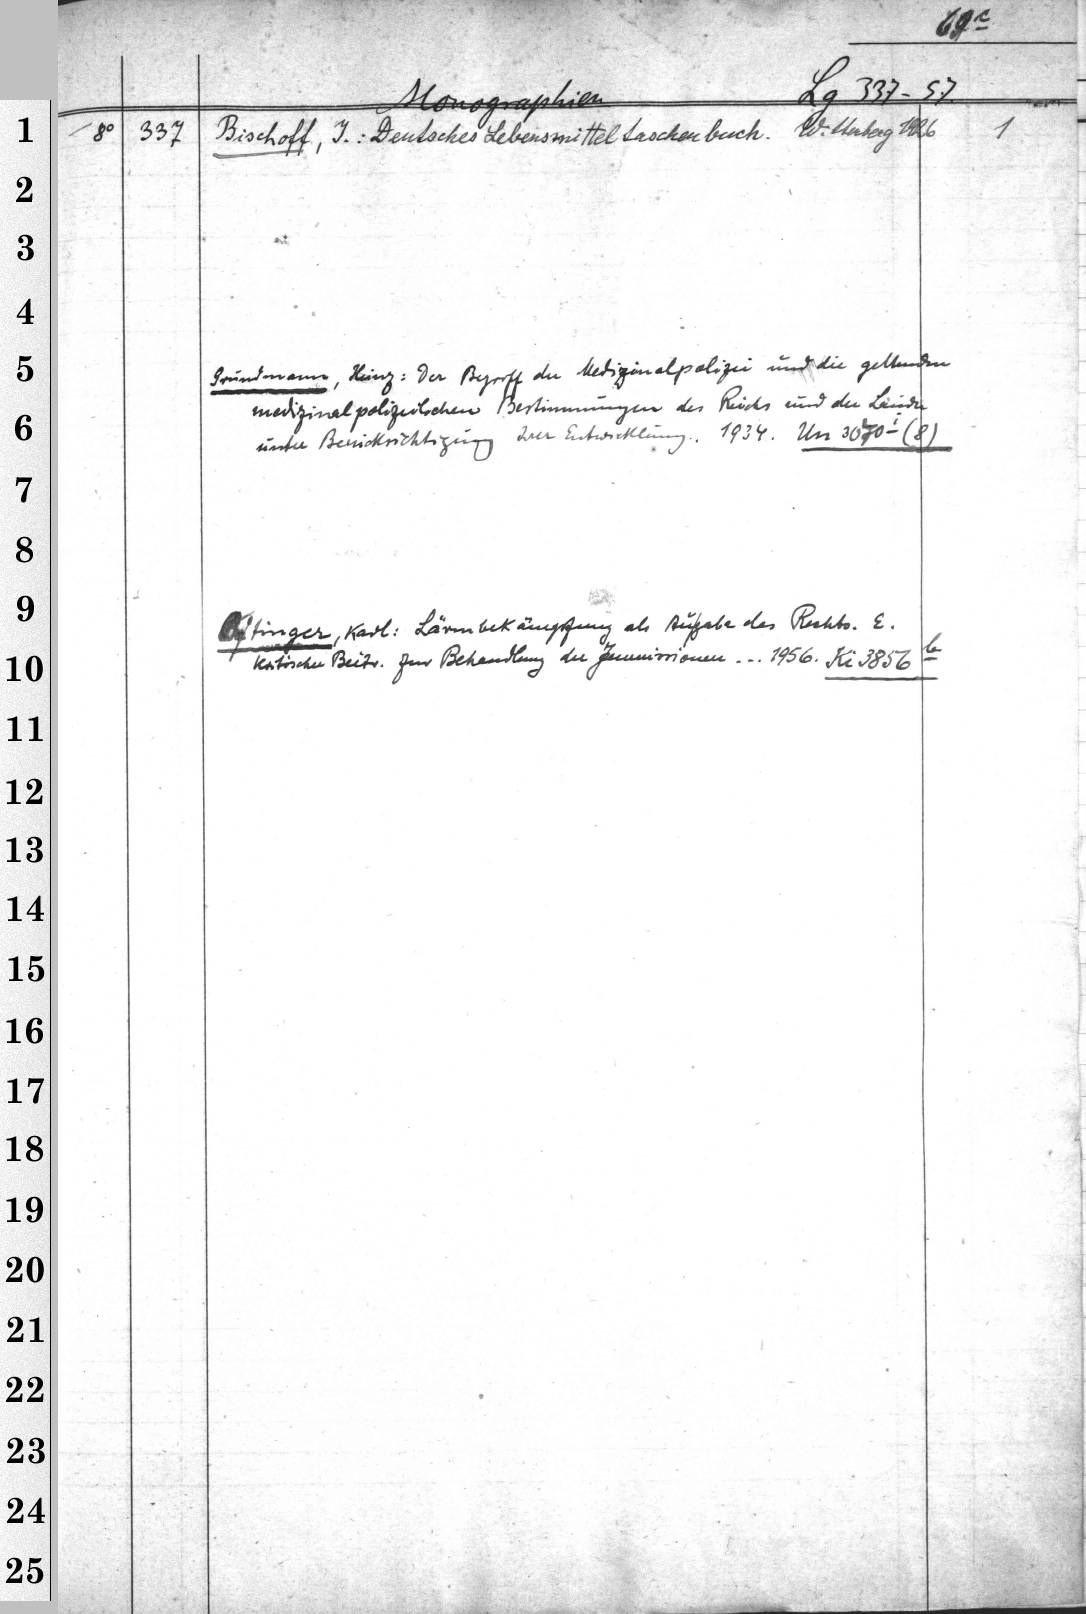 69c
Monographien Lg 337-57
1 8° 337 Bischoff, J.: Deutsches Lebensmitteltaschenbuch. 1
2
3
4
5 Grundmann, Heinz: Der Begriff der Medizinalpolizei und die geltenden
medizinalpolizeilichen Bestimmungen des Reichs und der Länder
6 unter Berücksichtigung ihrer Entwicklung. 1934. Un 3070 i (8)
7
8
9 Oftinger, Karl: Lärmbekämpfung als Aufgabe des Rechts. E.
10 kritischer Beitr. zur Behandlung der Immissionen ... 1956. Ki 3856 b
11
12
13
14
15
16
17
18
19
20
21
22
23
24
25